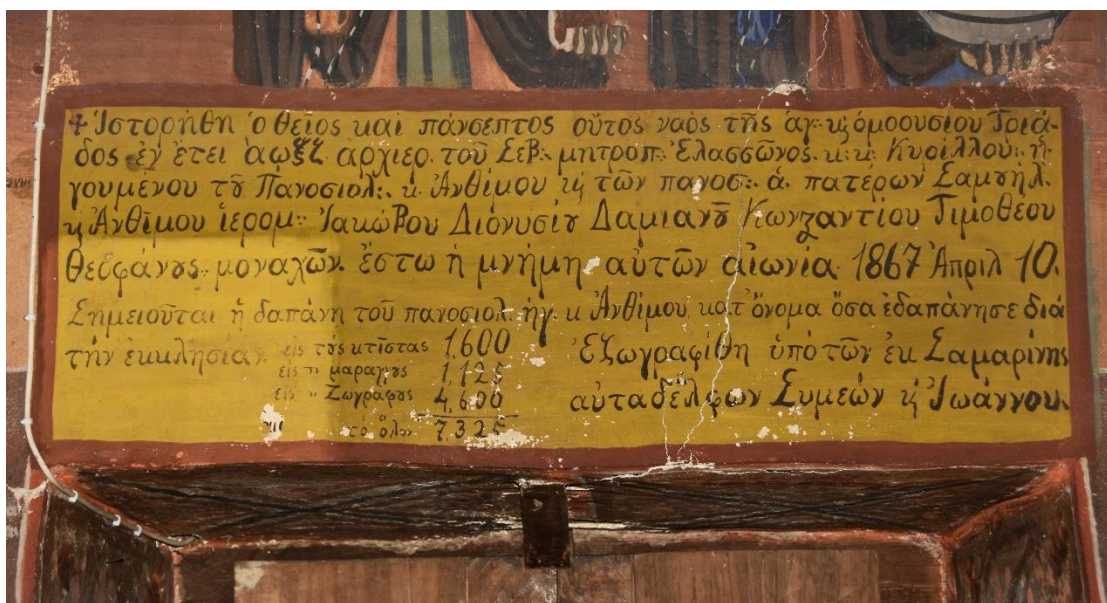 + Ἱστορήθη ὁ θεῖος καὶ πάνσεπτος οὗτος ναὸς τῆς ἁγ: κ̣ ὁμοουσίου Τριά-
δος ἐν ἔτει ͵αωξζ ἀρχιερ. τοῦ Σεβ: μητροπ: Ἐλασσῶνος κ: κ: Κυρίλλου: ἡ-
γουμένου τȣ͂ Πανοσιολ: κ Ἀνθίμου κ̣ τῶν πανοσ: ἁ. πατέρων Σαμȣήλ.
κ̣ Ἀνθίμου ἱερομ: Ἰακώβου Διονυσίȣ Δαμιανȣ͂ Κωνϛαντίου Τιμοθέου
Θεοφάνȣς: μοναχῶν. ἔστω ἡ μνήμη αὐτῶν αἰωνία. 1867 Ἀπριλ 10.
Σημειοῦται ἡ δαπάνη τοῦ πανοσιολ ἡγ κ Ἀνθίμου κατ' ὄνομα ὅσα ἐδαπάνησε διὰ
τὴν ἐκκλησίαν. εἰς τȣς κτίστας 1,600 Ἐζωγραφίθη ὑπὸ τῶν ἐκ Σαμαρίνης
εἰς τ: μαραγγȣς 1,125
εἰς " Ζωγράφȣς 4,600 αὐταδέλφων Συμεών κ̣ Ἰωάννου.
τὸ ὅλον 7,325